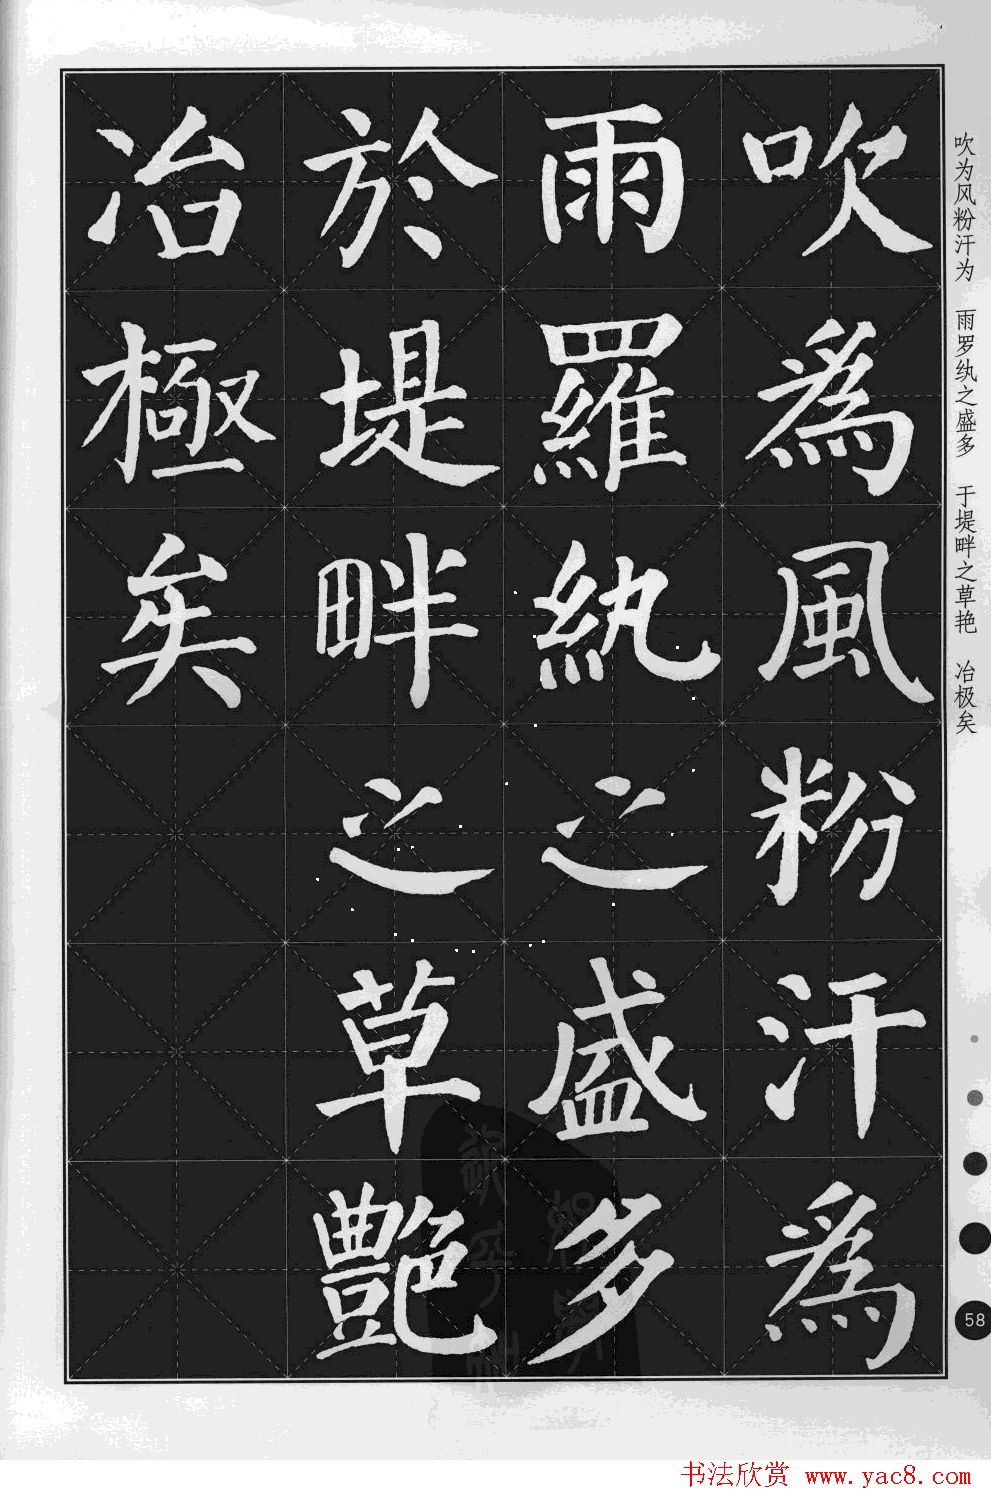 吹為風粉汗為
雨羅紈之盛多
於堤畔之草艷
冶極矣
吹为风粉汗为 雨罗纨之盛多 于堤畔之草艳 冶极矣
58
书法欣赏 www.yac8.com